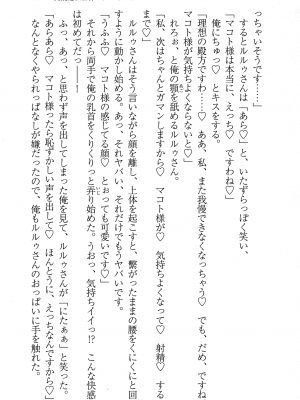 っちゃいそうです……」
するとルルゥさんは「あら♡」と、いたずらっぽく笑い、
「マコト様は本当に、えっち♡ ですわね♡」
俺にちゅっ♡ とキスをする。
「理想の殿方ですわ……♡ ああ、私、また我慢できなくなっちゃう♡ でも、だめ、ですね
マコト様が気持ちよくならないと♡」
れろぉ、と俺の顎を舐めるルルゥさん。
「私、次はちゃんとガマンしますから♡ マコト様が♡ 気持ちよくなって♡ 射精♡ する
まで♡」
ルルゥさんはそう言いながら顔を離し、上体を起こすと、繋がったままの腰をくにくにと回
すように動かし始める。あっ、それヤバい、それだけでもうヤバいです。
「うふふ♡ マコト様の感じてる顔♡ とおっても可愛いです♡」
それから両手で俺の乳首をくりくりっと弄り始めた。うおっ、気持ちイイっ!? こんな快感
は初めてだっ――！
ふっ、あっ、と思わず声を出してしまった俺を見て、ルルゥさんが「にたぁぁ」と笑った。
「あらあら♡ マコト様ったら恥ずかしい声を出して♡ ほんとうに、えっちなんですから♡」
なんとなくやられっぱなしが嫌だったので、俺もルルゥさんのおっぱいに手を触れた。